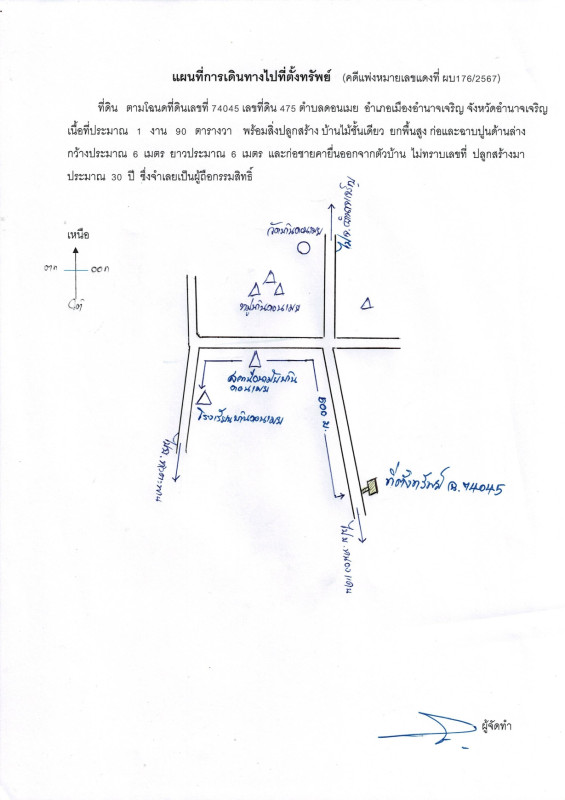 แผนที่การเดินทางไปที่ตั้งทรัพย์ (คดีแพ่งหมายเลขแดงที่ ผบ176/2567)
ที่ดิน ตามโฉนดที่ดินเลขที่ 74045 เลขที่ดิน 475 ตำบลดอนเมย อำเภอเมืองอำนาจเจริญ จังหวัดอำนาจเจริญ
เนื้อที่ประมาณ 1 งาน 90 ตารางวา พร้อมสิ่งปลูกสร้าง บ้านไม้ชั้นเดียว ยกพื้นสูง ก่อและฉาบปูนด้านล่าง
กว้างประมาณ 6 เมตร ยาวประมาณ 6 เมตร และก่อชายคายื่นออกจากตัวบ้าน ไม่ทราบเลขที่ ปลูกสร้างมา
ประมาณ 30 ปี ซึ่งจำเลยเป็นผู้ถือกรรมสิทธิ์
ไป จ.อำนาจเจริญ
วัดบ้านดอนเมย
เหนือ
ตต
ออก
ใต้
หมู่บ้านดอนเมย
บ้าน
ดอนเมย
โรงเรียนบ้านดอนเมย
800 ม.
ที่ตั้งทรัพย์ ฉ.74045
ผู้จัดทำ